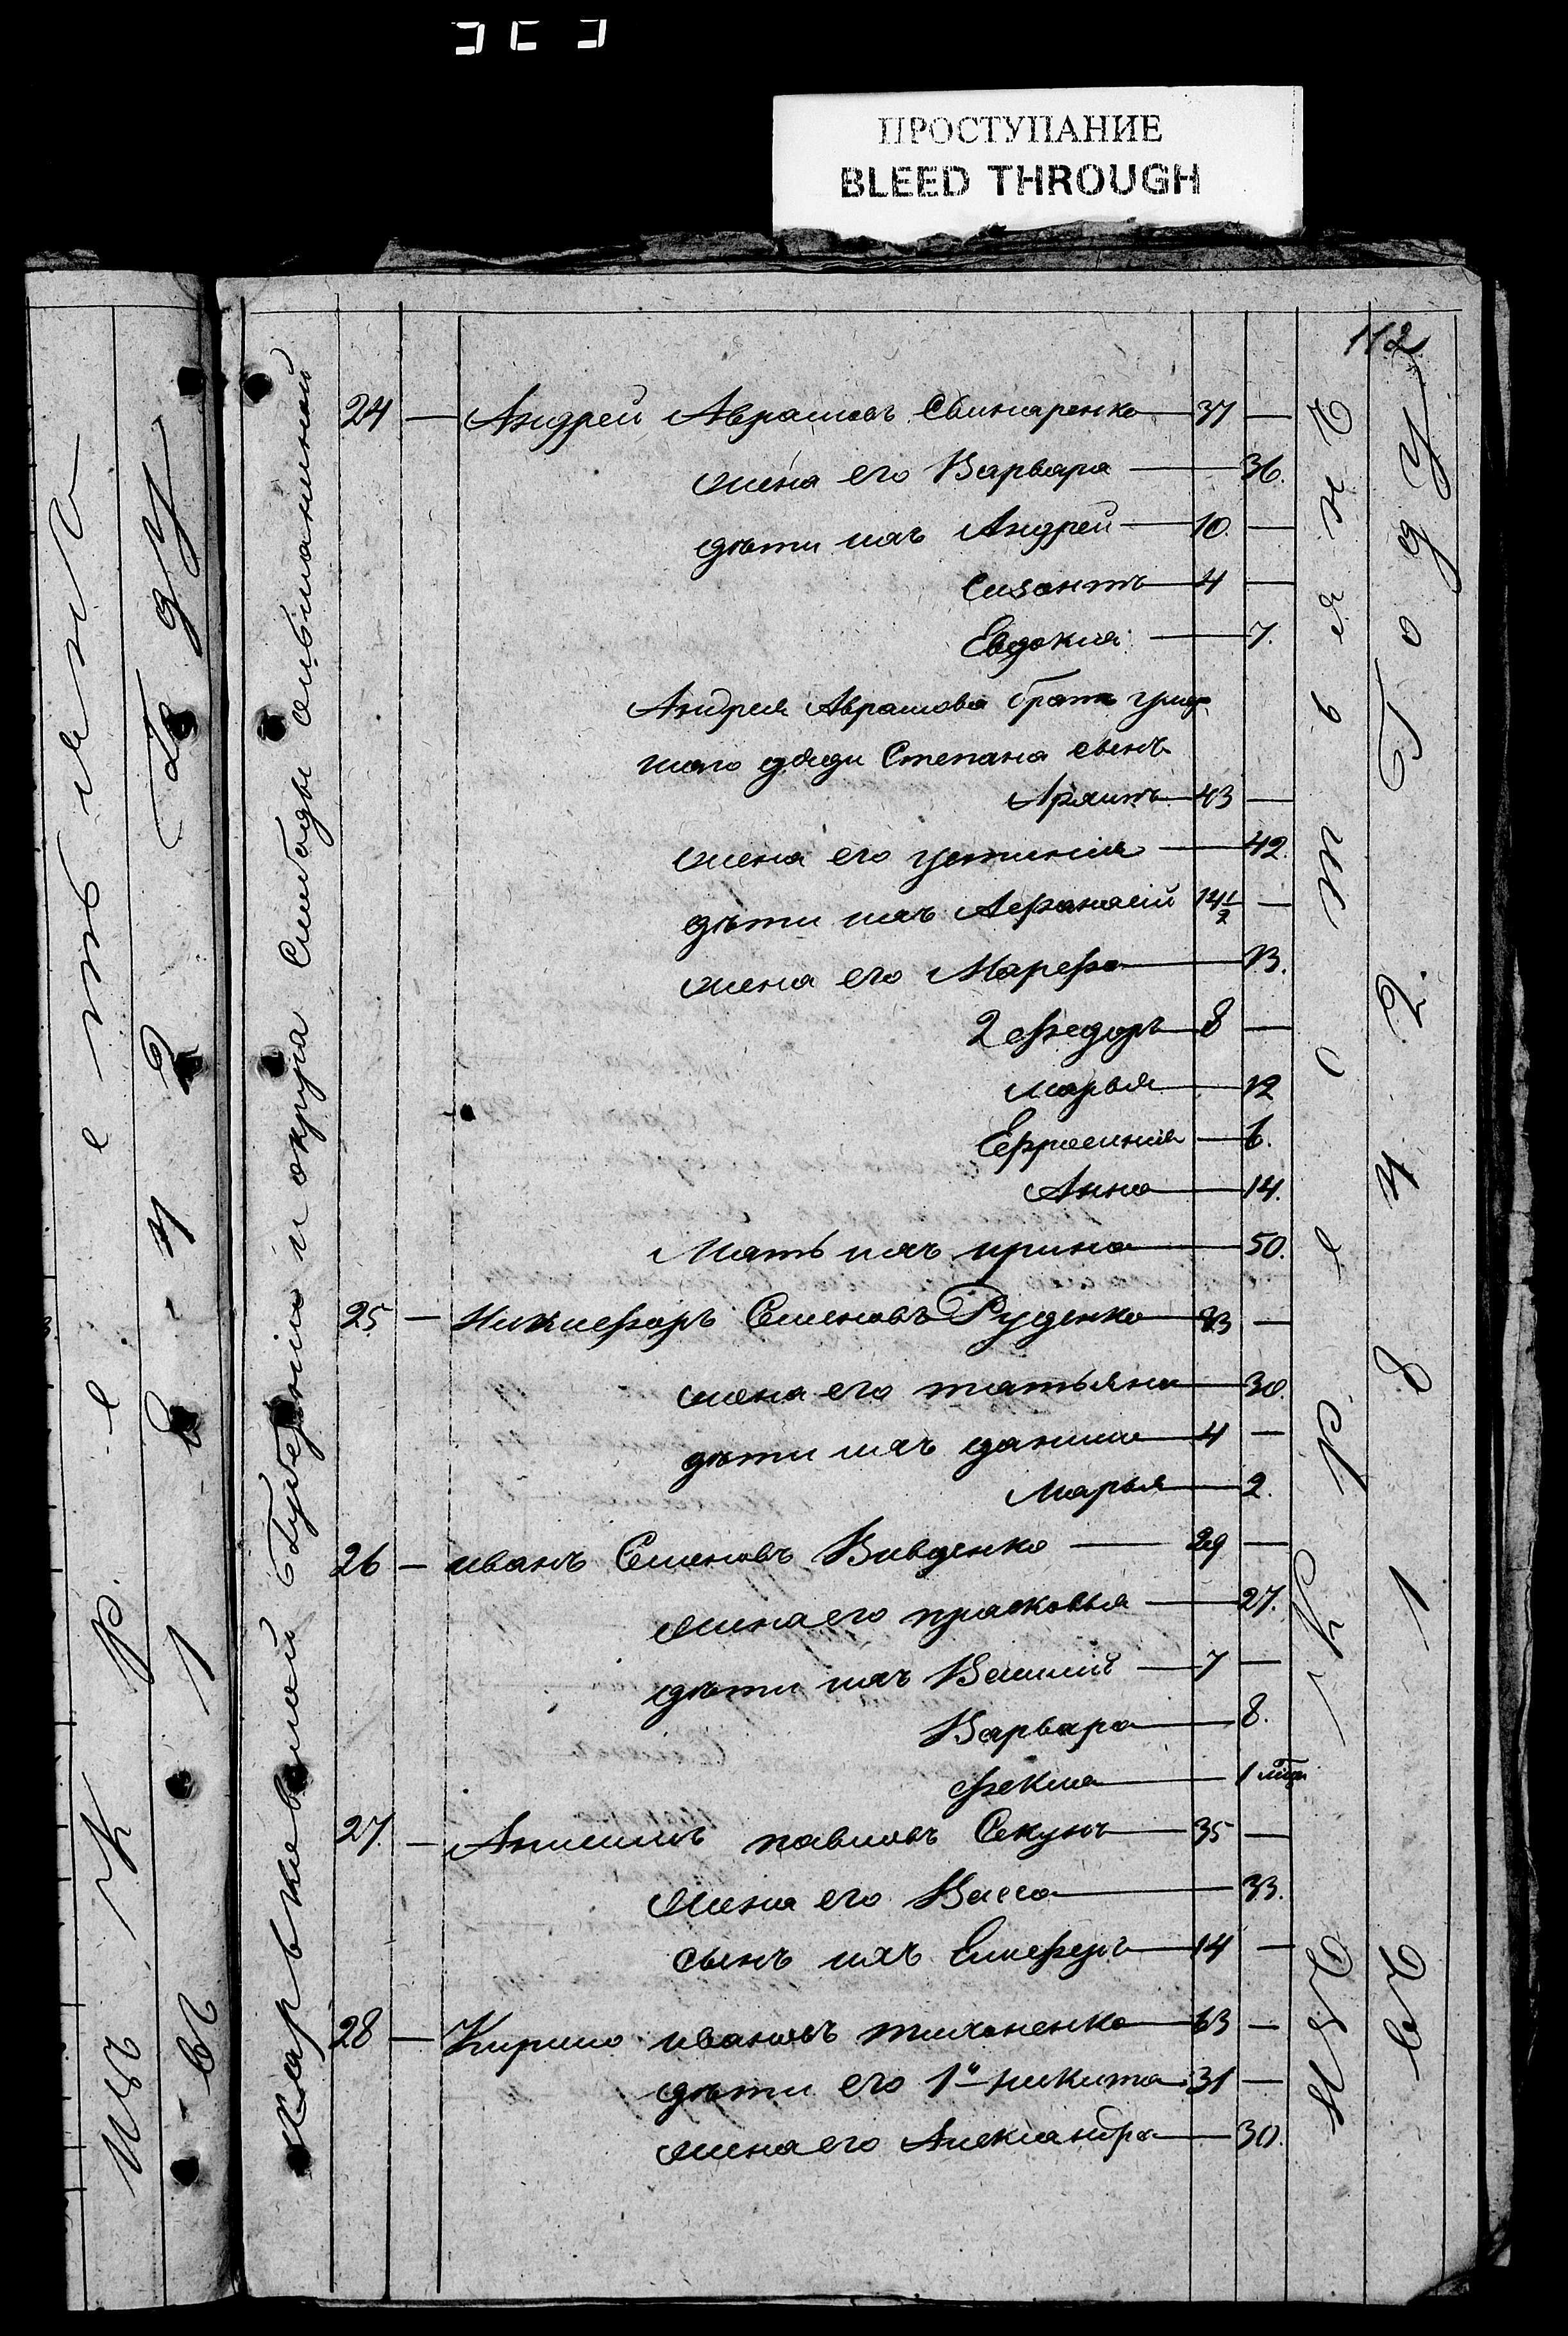 ПРОСТУПАНИЕ
BLEED THROUGH
112
Харьковской Губернии и округа Слободы ольшанской
24 — Андрей Аврамовъ Свинаренко — 37 —
жена его Варвара — 36.
дѣти ихъ Андрей — 10. —
4 —
Евдокия — 7.
Андрея Аврамова брата умер
шаго дяди Степана сынъ
43 —
жена его устиния — 42.
дѣти ихъ Афанасий 14 1/2 —
жена его Марефа — 13.
2 Федоръ — 8 —
марья — 12
Ефросиния — 6.
Анна — 14.
Мать ихъ ирина — 50.
25 — Никифоръ Семеновъ Руденко — 33 —
жена его татьяна — 30.
дѣти ихъ данила — 4 —
Марья — 2.
26 — иванъ Семеновъ Вивденко — 29 —
жена его прасковья — 27.
дѣти ихъ Василий — 7 —
Варвара — 8.
фекла — 1
27. — Анисимъ павловъ Секунъ — 35 —
жена его Васса — 33.
сынъ ихъ — 14 —
28 — Кирило ивановъ тихоненко — 63 —
дѣти его 1й никита 31 —
жена его Александра — 30.
Изъ крестьянъ
въ 1842. Году